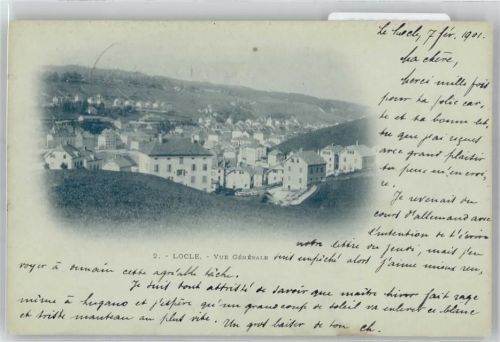 Le Locle, 7 fév. 1901.
Ma chère,
Merci mille fois
pour ta jolie car-
te et ta bonne let-
tre que j'ai reçues
avec grand plaisir
tu peux m'en croi-
re.
Je revenais du
cours d'allemand avec
l'intention de t'écrire
notre lettre du jeudi, mais j'en
2. - LOCLE. - VUE GÉNÉRALE
suis empêché alors j'aime mieux ren-
voyer à demain cette agréable tâche.
Je suis tout attristé de savoir que maître hiver fait rage
même à Lugano et j'espère qu'un grand coup de soleil va enlever ce blanc
et triste manteau au plus vite. Un gros baiser de ton ch.